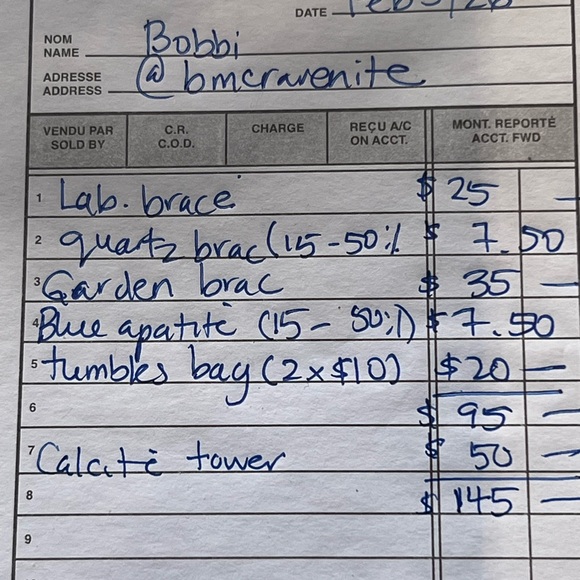 DATE
NOM
NAME Bobbi
ADRESSE
ADDRESS @bmcravenite
VENDU PAR
SOLD BY
C.R.
C.O.D.
CHARGE
REÇU A/C
ON ACCT.
MONT. REPORTÉ
ACCT. FWD
1 Lab. brace $ 25 —
2 quartz brac (15-50% $ 7.50
3 Garden brac $ 35 —
4 Blue apatite (15-50%) $7.50
5 tumbles bag (2x$10) $20 —
6 $ 95 —
7 Calcite tower $ 50 —
8 $ 145 —
9